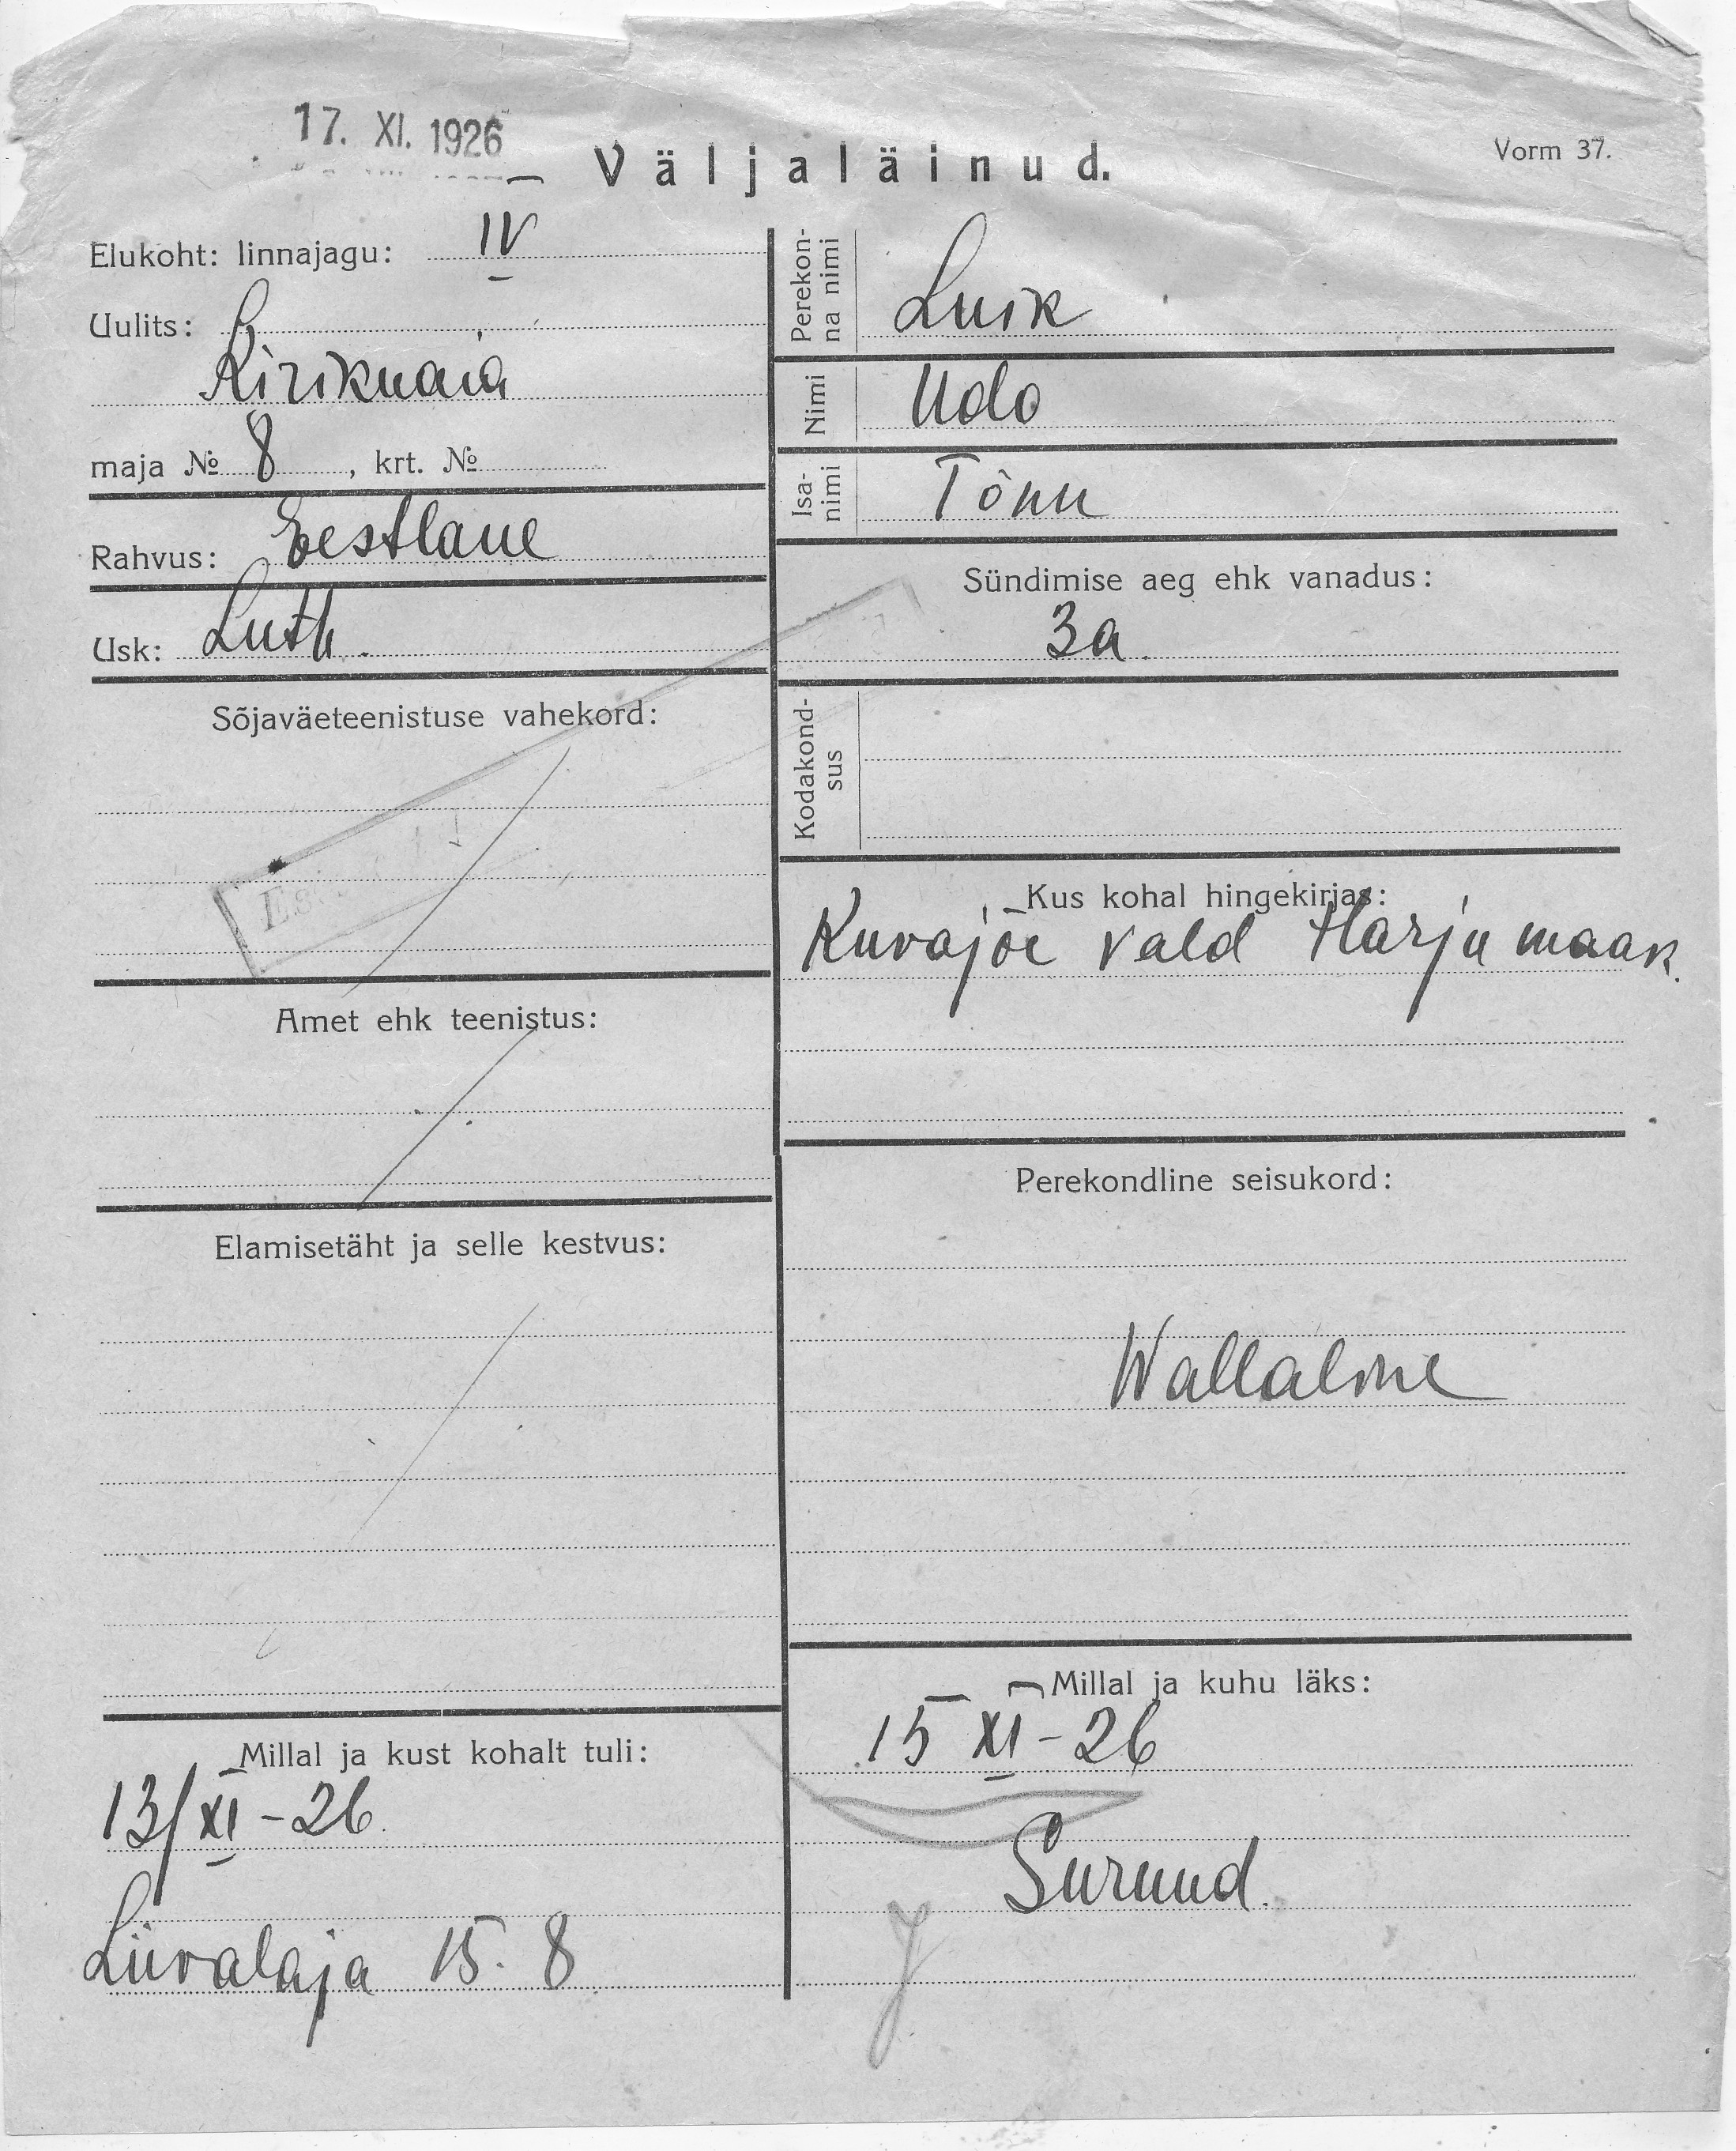 17. XI. 1926
Väljaläinud.
Vorm 37.
Elukoht: linnajagu: IV
Uulits:
Kirikuaia
maja № 8, krt. №
Rahvus: Eestlane
Usk: Luth.
Sõjaväeteenistuse vahekord:
Amet ehk teenistus:
Elamisetäht ja selle kestvus:
Millal ja kust kohalt tuli:
13/XI-26.
Liivalaja 15. 8
Perekon-
na nimi
Luik
Nimi Udo
Isa-
nimi
Tõnu
Sündimise aeg ehk vanadus:
3a.
Kodakond-
sus
Kus kohal hingekirjas:
Kuvajõe vald Harju maak.
Perekondline seisukord:
Wallaline
Millal ja kuhu läks:
15 XI-26
Surnud.